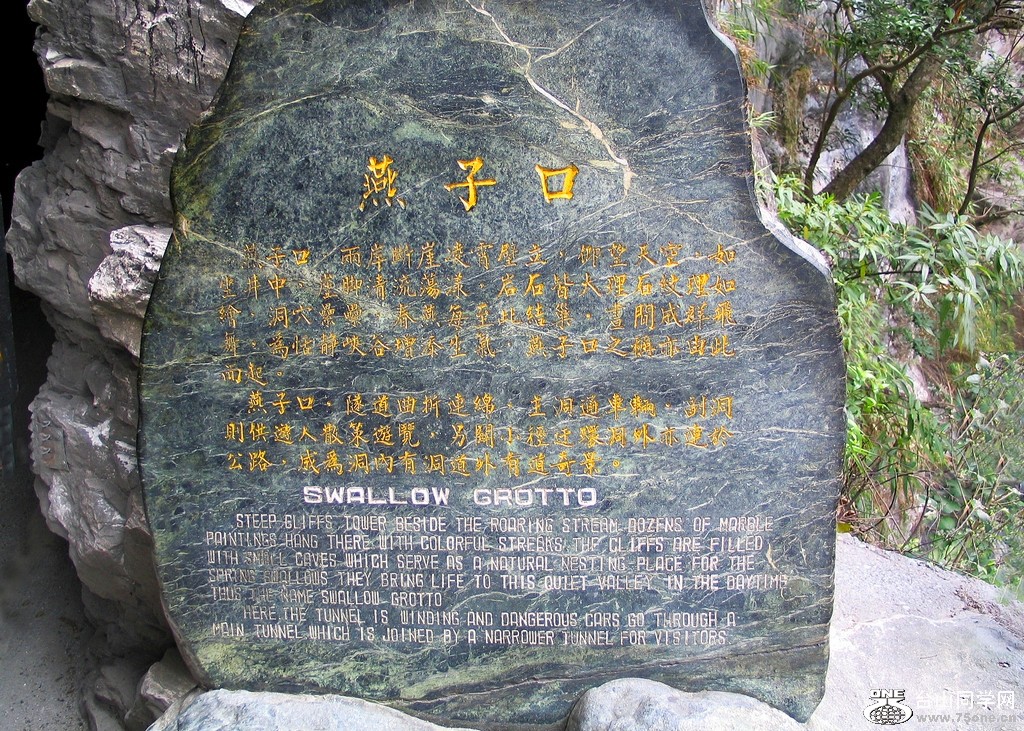 燕子口
燕子口，兩岸斷崖凌霄壁立，仰望天空，如
坐井中，崖脚清流蕩漾，岩石皆大理石紋理如
繪，洞穴纍纍，春燕每至此結集，晝間成群飛
舞，為恬靜峽谷增添生氣，燕子口之稱亦由此
而起。
燕子口，隧道曲折連綿，主洞通車輛，副洞
則供遊人散策遊覽，另闢小徑迂迴洞外亦連於
公路，成為洞內有洞道外有道奇景。
SWALLOW GROTTO
STEEP CLIFFS TOWER BESIDE THE ROARING STREAM. DOZENS OF MARBLE
PAINTINGS HANG THERE WITH COLORFUL STREAKS. THE CLIFFS ARE FILLED
WITH SMALL CAVES WHICH SERVE AS A NATURAL NESTING PLACE FOR THE
SPRING SWALLOWS. THEY BRING LIFE TO THIS QUIET VALLEY IN THE DAYTIME
THUS THE NAME SWALLOW GROTTO
HERE THE TUNNEL IS WINDING AND DANGEROUS CARS GO THROUGH A
MAIN TUNNEL WHICH IS JOINED BY A NARROWER TUNNEL FOR VISITORS
ONE 台山同学网
www.75one.cn